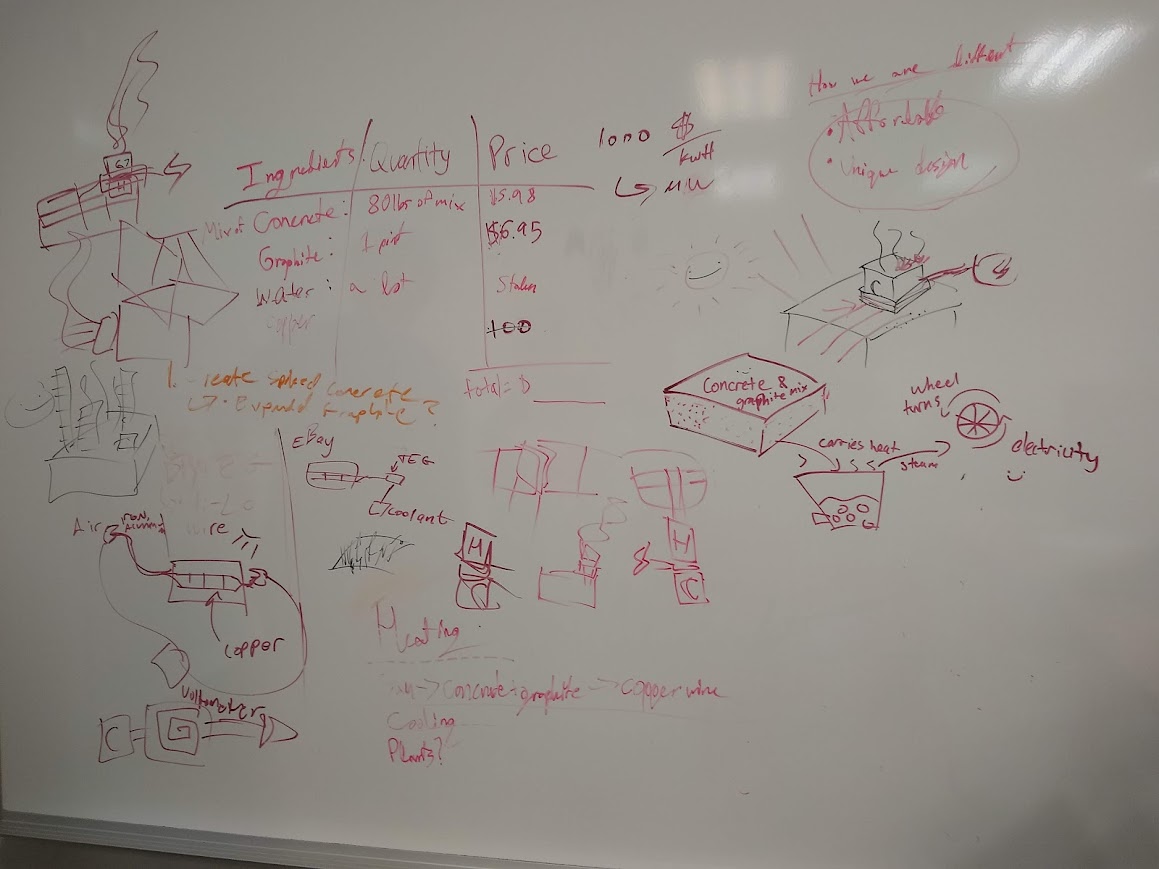 How we are different
• Affordable
• Unique design
1000 $/kWH
↳ MW
Ingredients Quantity Price
Mix of Concrete: 80lbs of mix $5.98
Graphite: 1 pint $6.95
Water: a lot Stolen
Copper 100
total = $
Concrete & graphite mix
carries heat
steam
wheel turns
electricity
C
1.
concrete
EBay
TEG
coolant
Air
wire
Copper
Voltmeter
C
G
H
H
C
Heating
→ Concrete + graphite → copper wire
Cooling
Plants?